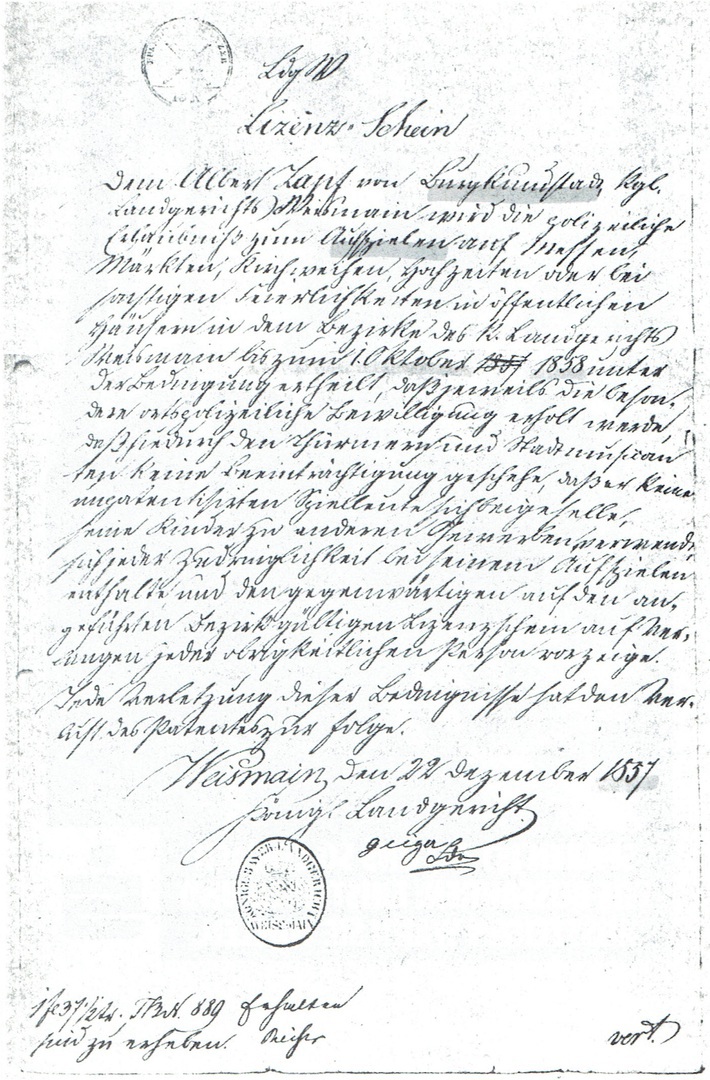 LdgW
Lizenz-Schein
Dem Albert Zapf von Burgkundstadt, Kgl.
Landgerichts Weismain wird die polizeiliche
Erlaubniß zum Aufspielen auf Messen,
Märkten, Kirchweihen, Hochzeiten oder bei
sonstigen Feierlichkeiten in öffentlichen
Häusern in dem Bezirke des K. Landgerichts
Weismain bis zum 1. Oktober 1857 1858 unter
der Bedingung ertheilt, daß jeweils die beson-
dere ortspolizeiliche Bewilligung erholt werde,
daß hiedurch den Thürmern und Stadtmusican
ten keine Beeinträchtigung geschehe, daß er keine
unpatentisirten Spielleute sich beigeselle,
seine Kinder zu anderen Gewerben verwende,
sich jeder Zudringlichkeit bei seinem Aufspielen
enthalte und den gegenwärtigen auf den an-
geführten Bezirk gültigen Lizenzschein auf Ver-
langen jeder obrigkeitlichen Person vorzeige.
Jede Verletzung dieser Bedingnisse hat den Ver-
lust des Patentes zur Folge.
Weismain, den 22 Dezember 1857
Königl Landgericht
KÖNIGL. BAYER. LANDGERICHT
WEISMAIN
1 f 37 1/2 kr. 889 Erhalten
sind zu erheben.
vert.